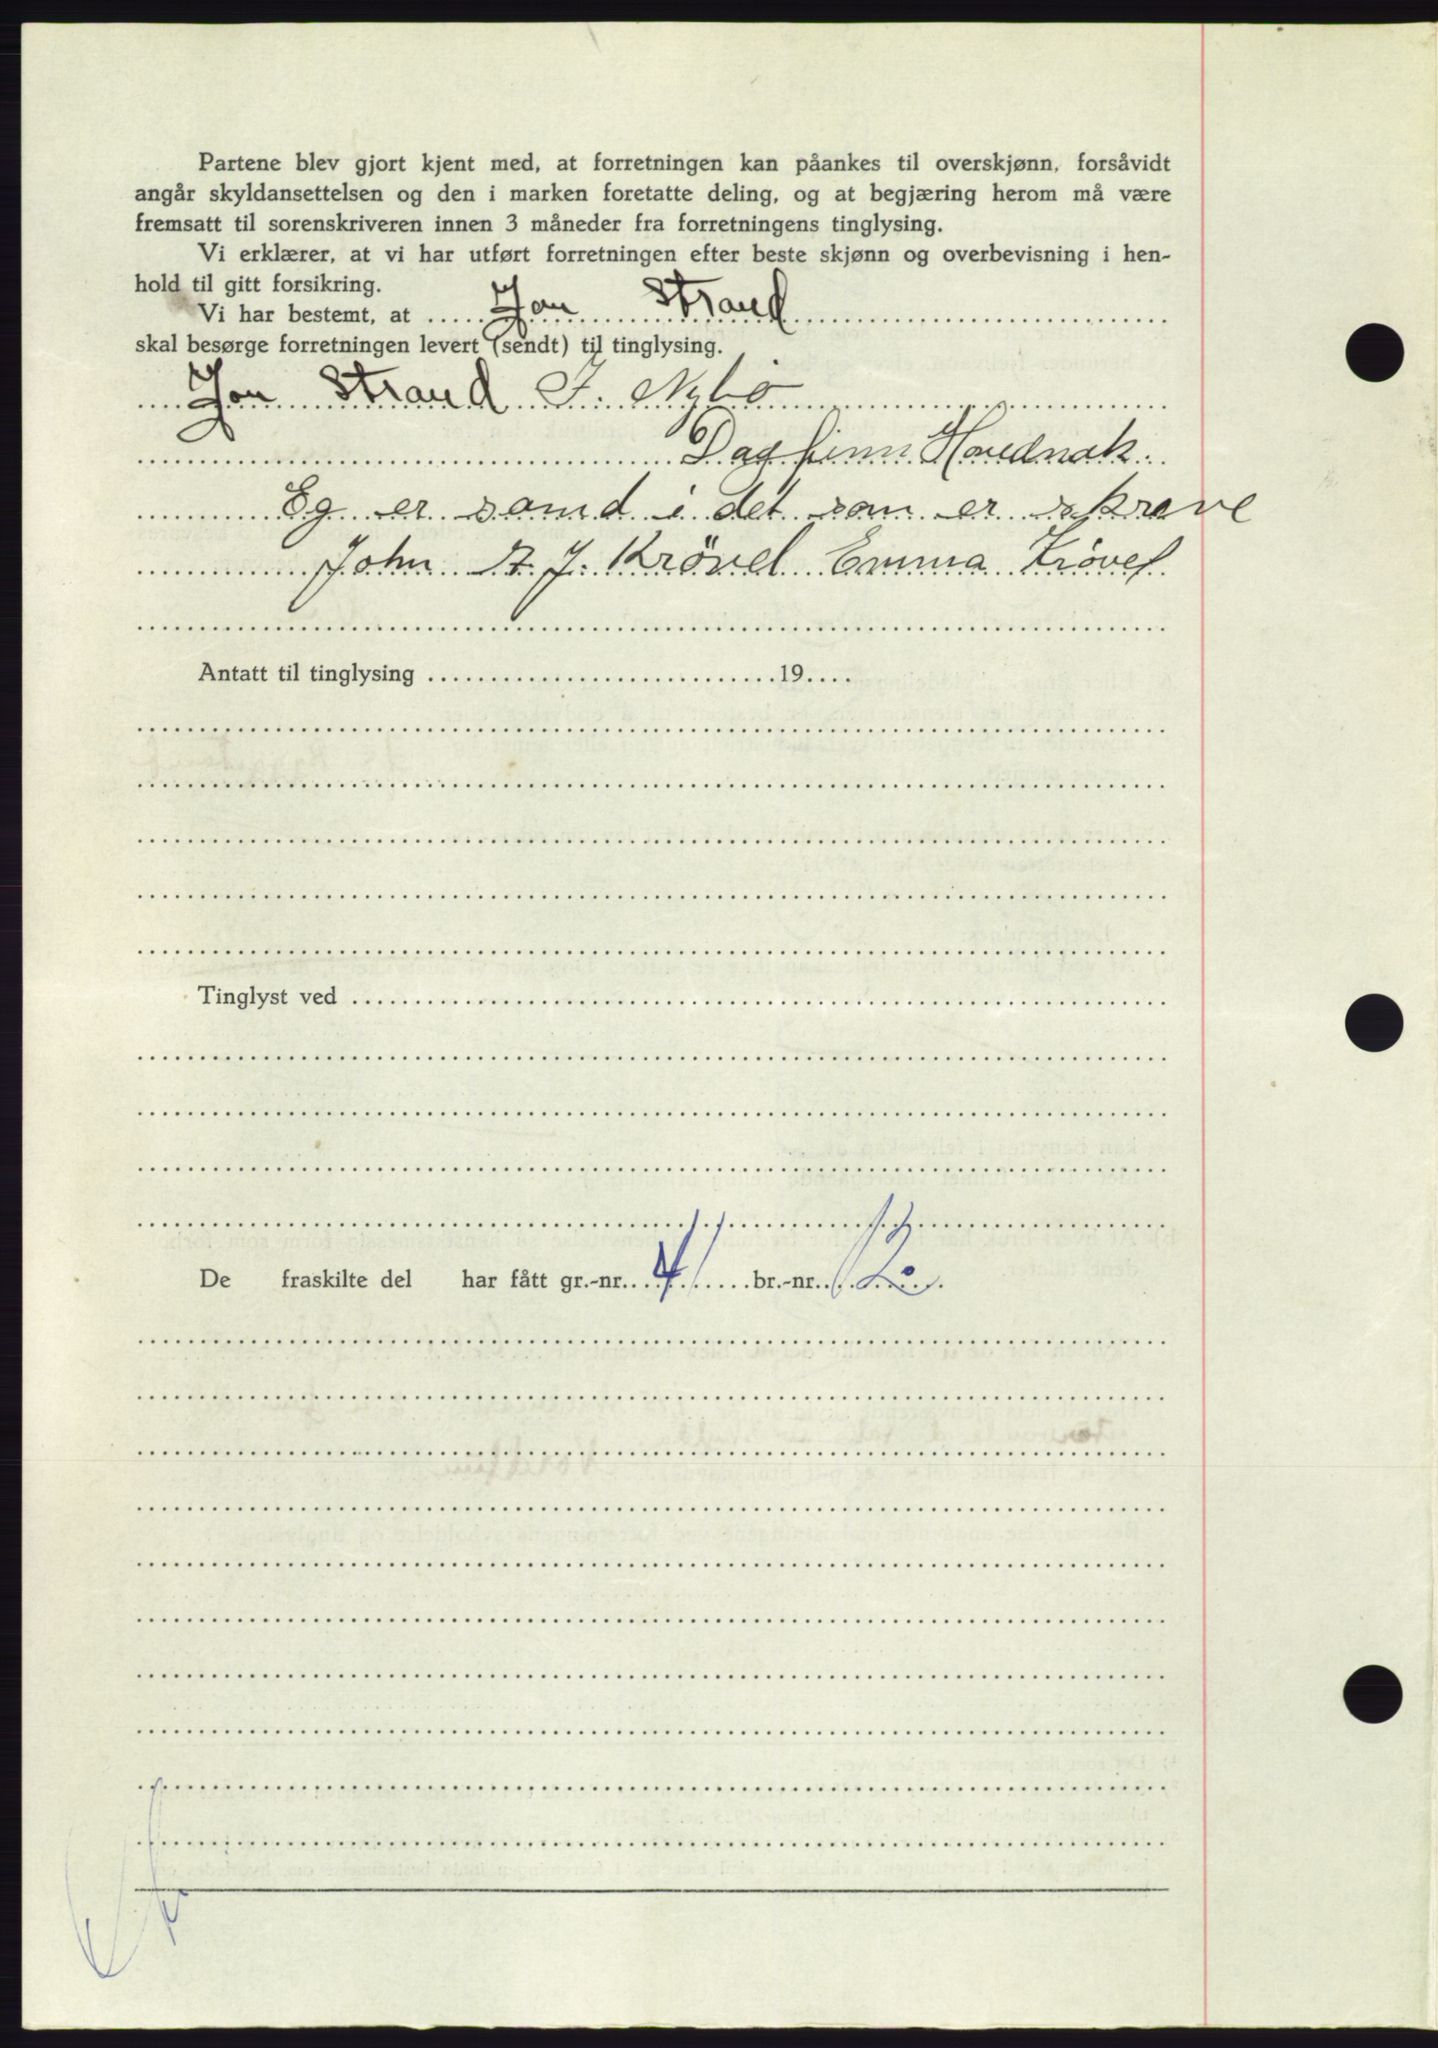 Partene blev gjort kjent med, at forretningen kan påankes til overskjønn, forsåvidt
angår skyldansettelsen og den i marken foretatte deling, og at begjæring herom må være
fremsatt til sorenskriveren innen 3 måneder fra forretningens tinglysing.
Vi erklærer, at vi har utført forretningen efter beste skjønn og overbevisning i hen-
hold til gitt forsikring.
Vi har bestemt, at Jon Strand
skal besørge forretningen levert (sendt) til tinglysing.
Jon Strand J. Nybö
Dagfinn Hovednak.
Eg er samd i det som er skreve
John A. J. Krövel Emma Krövel
Antatt til tinglysing 19
Tinglyst ved
De fraskilte del har fått gr.-nr. br.-nr.